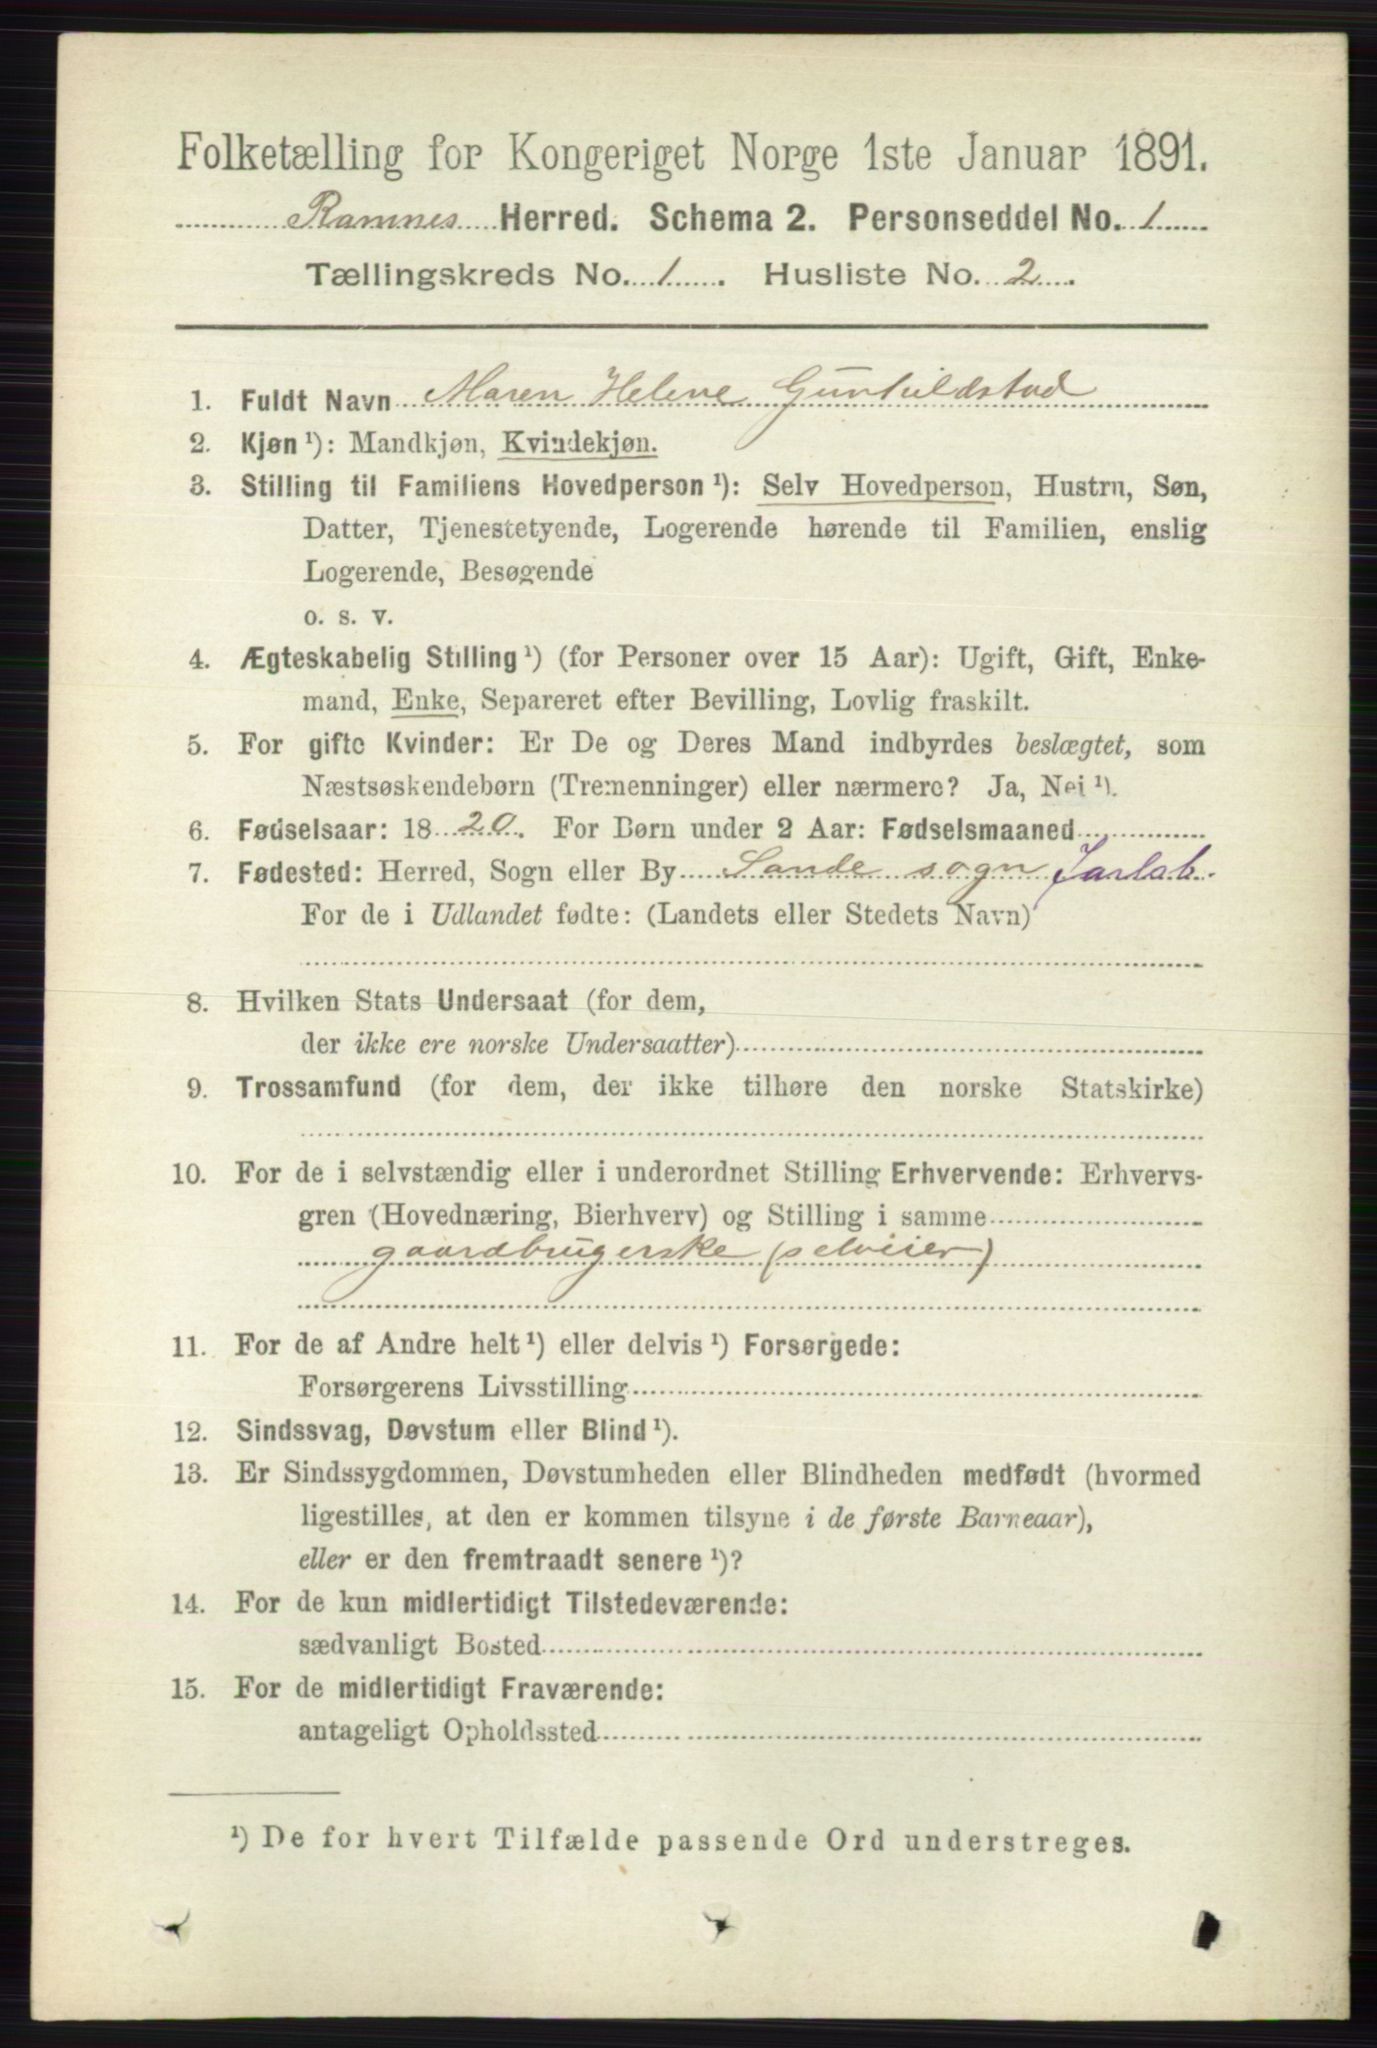 Folketælling for Kongeriget Norge 1ste Januar 1891.
Ramnes Herred. Schema 2. Personseddel No. 1
Tællingskreds No. 1. Husliste No. 2.
1. Fuldt Navn Maren Helene Gunhildstad
2. Kjøn ¹): Mandkjøn, Kvindekjøn.
3. Stilling til Familiens Hovedperson ¹): Selv Hovedperson, Hustru, Søn,
Datter, Tjenestetyende, Logerende hørende til Familien, enslig
Logerende, Besøgende
o. s. v.
4. Ægteskabelig Stilling ¹) (for Personer over 15 Aar): Ugift, Gift, Enke-
mand, Enke, Separeret efter Bevilling, Lovlig fraskilt.
5. For gifte Kvinder: Er De og Deres Mand indbyrdes beslægtet, som
Næstsøskendebørn (Tremenninger) eller nærmere? Ja, Nei ¹).
6. Fødselsaar: 18 20. For Børn under 2 Aar: Fødselsmaaned
7. Fødested: Herred, Sogn eller By Sande sogn Jarlsb.
For de i Udlandet fødte: (Landets eller Stedets Navn)
8. Hvilken Stats Undersaat (for dem,
der ikke ere norske Undersaatter)
9. Trossamfund (for dem, der ikke tilhøre den norske Statskirke)
10. For de i selvstændig eller i underordnet Stilling Erhvervende: Erhvervs-
gren (Hovednæring, Bierhverv) og Stilling i samme
gaardbrugerske (selveier)
11. For de af Andre helt ¹) eller delvis ¹) Forsørgede:
Forsørgerens Livsstilling
12. Sindssvag, Døvstum eller Blind ¹).
13. Er Sindssygdommen, Døvstumheden eller Blindheden medfødt (hvormed
ligestilles, at den er kommen tilsyne i de første Barneaar),
eller er den fremtraadt senere ¹)?
14. For de kun midlertidigt Tilstedeværende:
sædvanligt Bosted
15. For de midlertidigt Fraværende:
antageligt Opholdssted
¹) De for hvert Tilfælde passende Ord understreges.